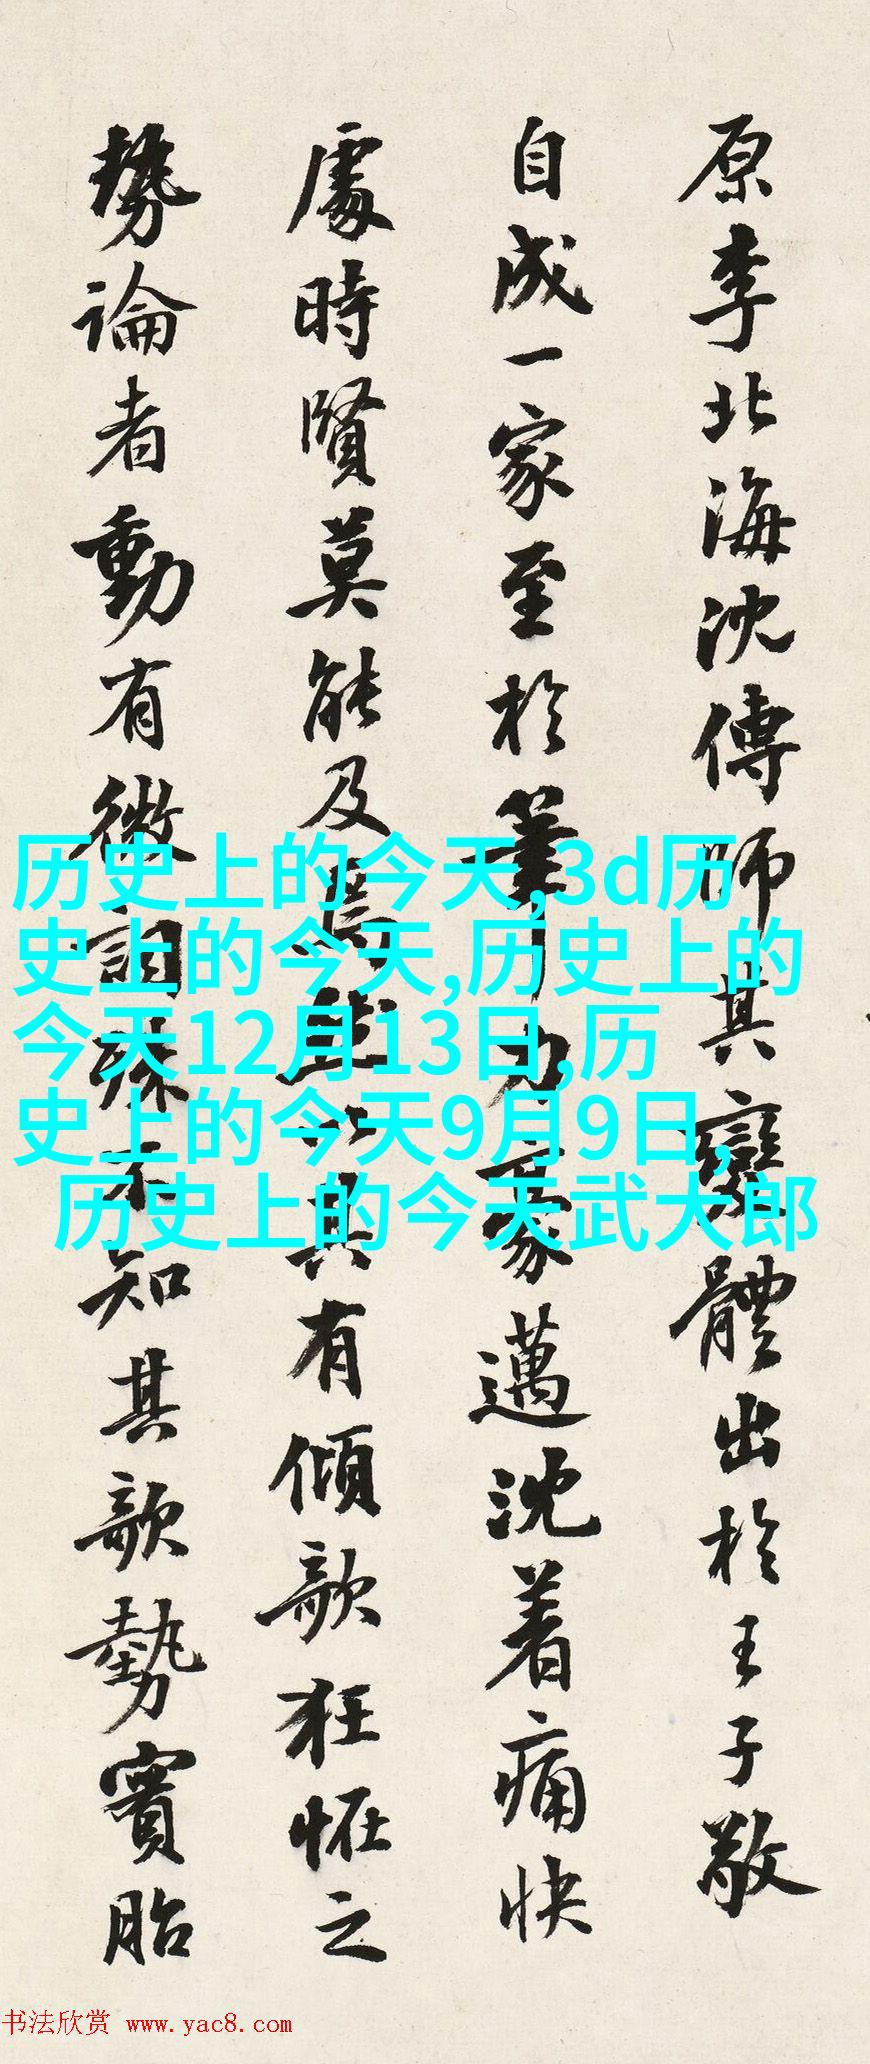 原李北海沈傳師其變體出於王子敬
自成一家至於筆力豪邁沈着痛快
處時賢莫能及焉然以其有傾欹狂怪之
勢論者動有微詞殊不知其欹勢實胎
历史上的今天,3d历
史上的今天,历史上的
今天12月13日,历
史上的今天9月9日,
历史上的今天武大郎
书法欣赏 www.yac8.com